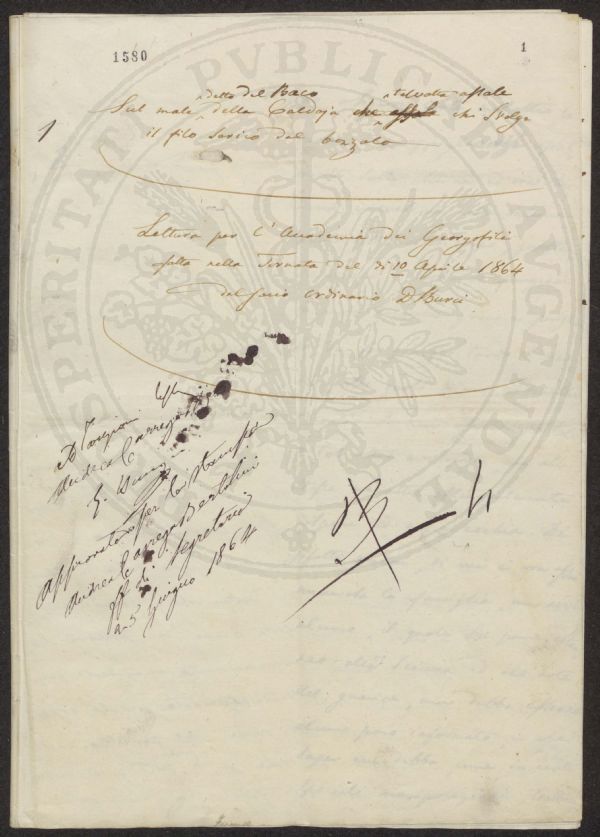 1580
1
1
detto del Baco talvolta assale
Sul male della Caldaja che assale chi svolge
il filo serico del bozzolo
Lettura per l'Accademia dei Georgofili
fatta nella Tornata del dì 10 Aprile 1864
del socio ordinario D Burci
A Targioni
Andrea Carrega
Approvato per la stampa
Andrea Carega Bertolini
ff di Segretario
a 5 Giugno 1864
PROSPERITATI PVBLICAE AVGENDAE